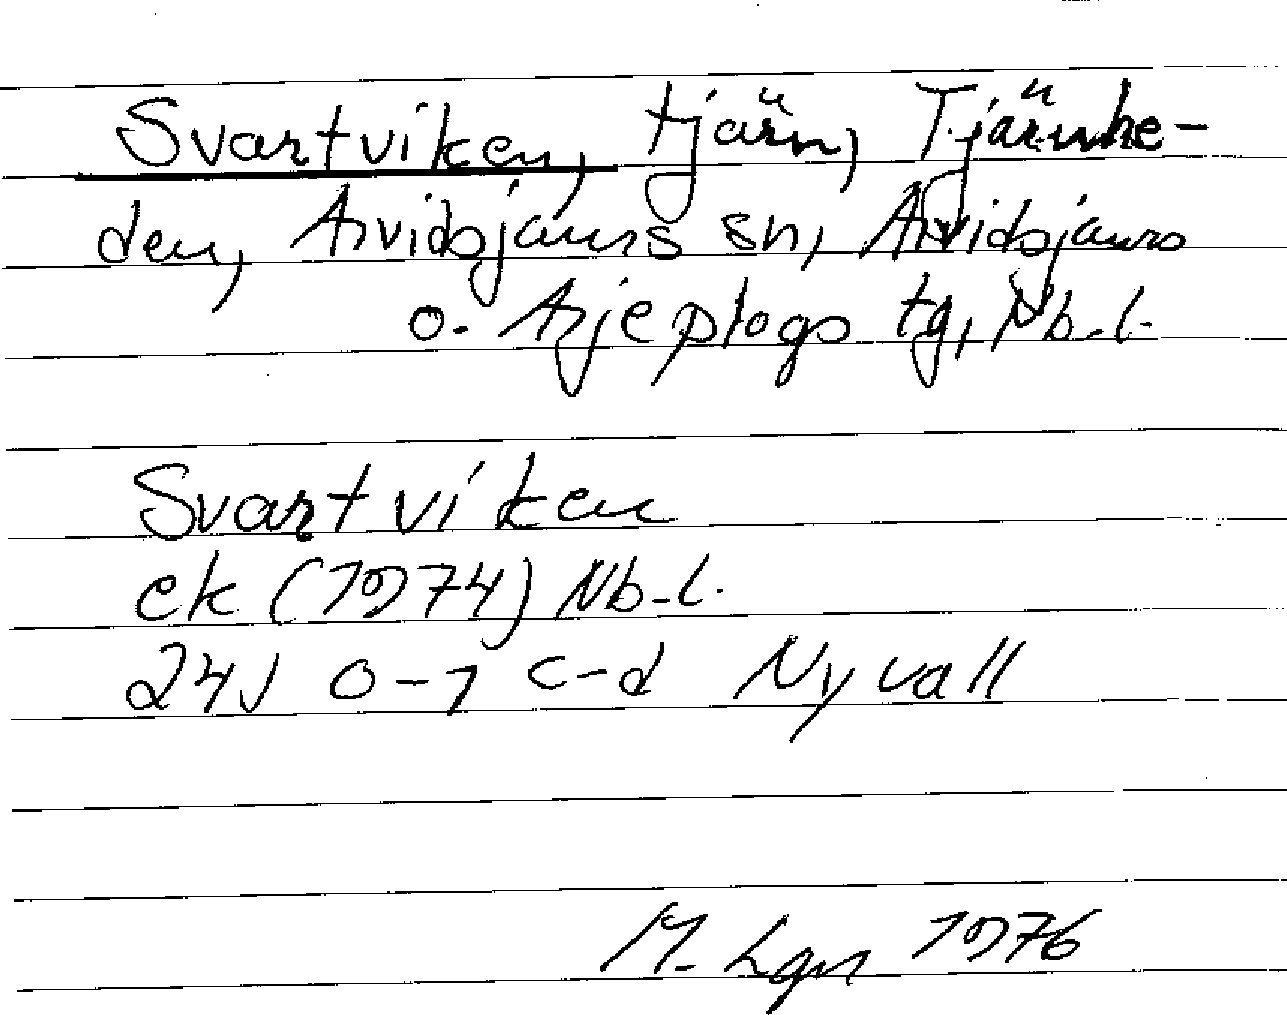 Svartviken, tjärn, Tjärnhe-
den, Arvidsjaurs sn, Arvidsjaurs
o. Arjeplogs tg, Nb.l.
Svartviken
ek (1974) Nb.l.
24J 0-1 c-d Nyvall
M. Lgn 1976